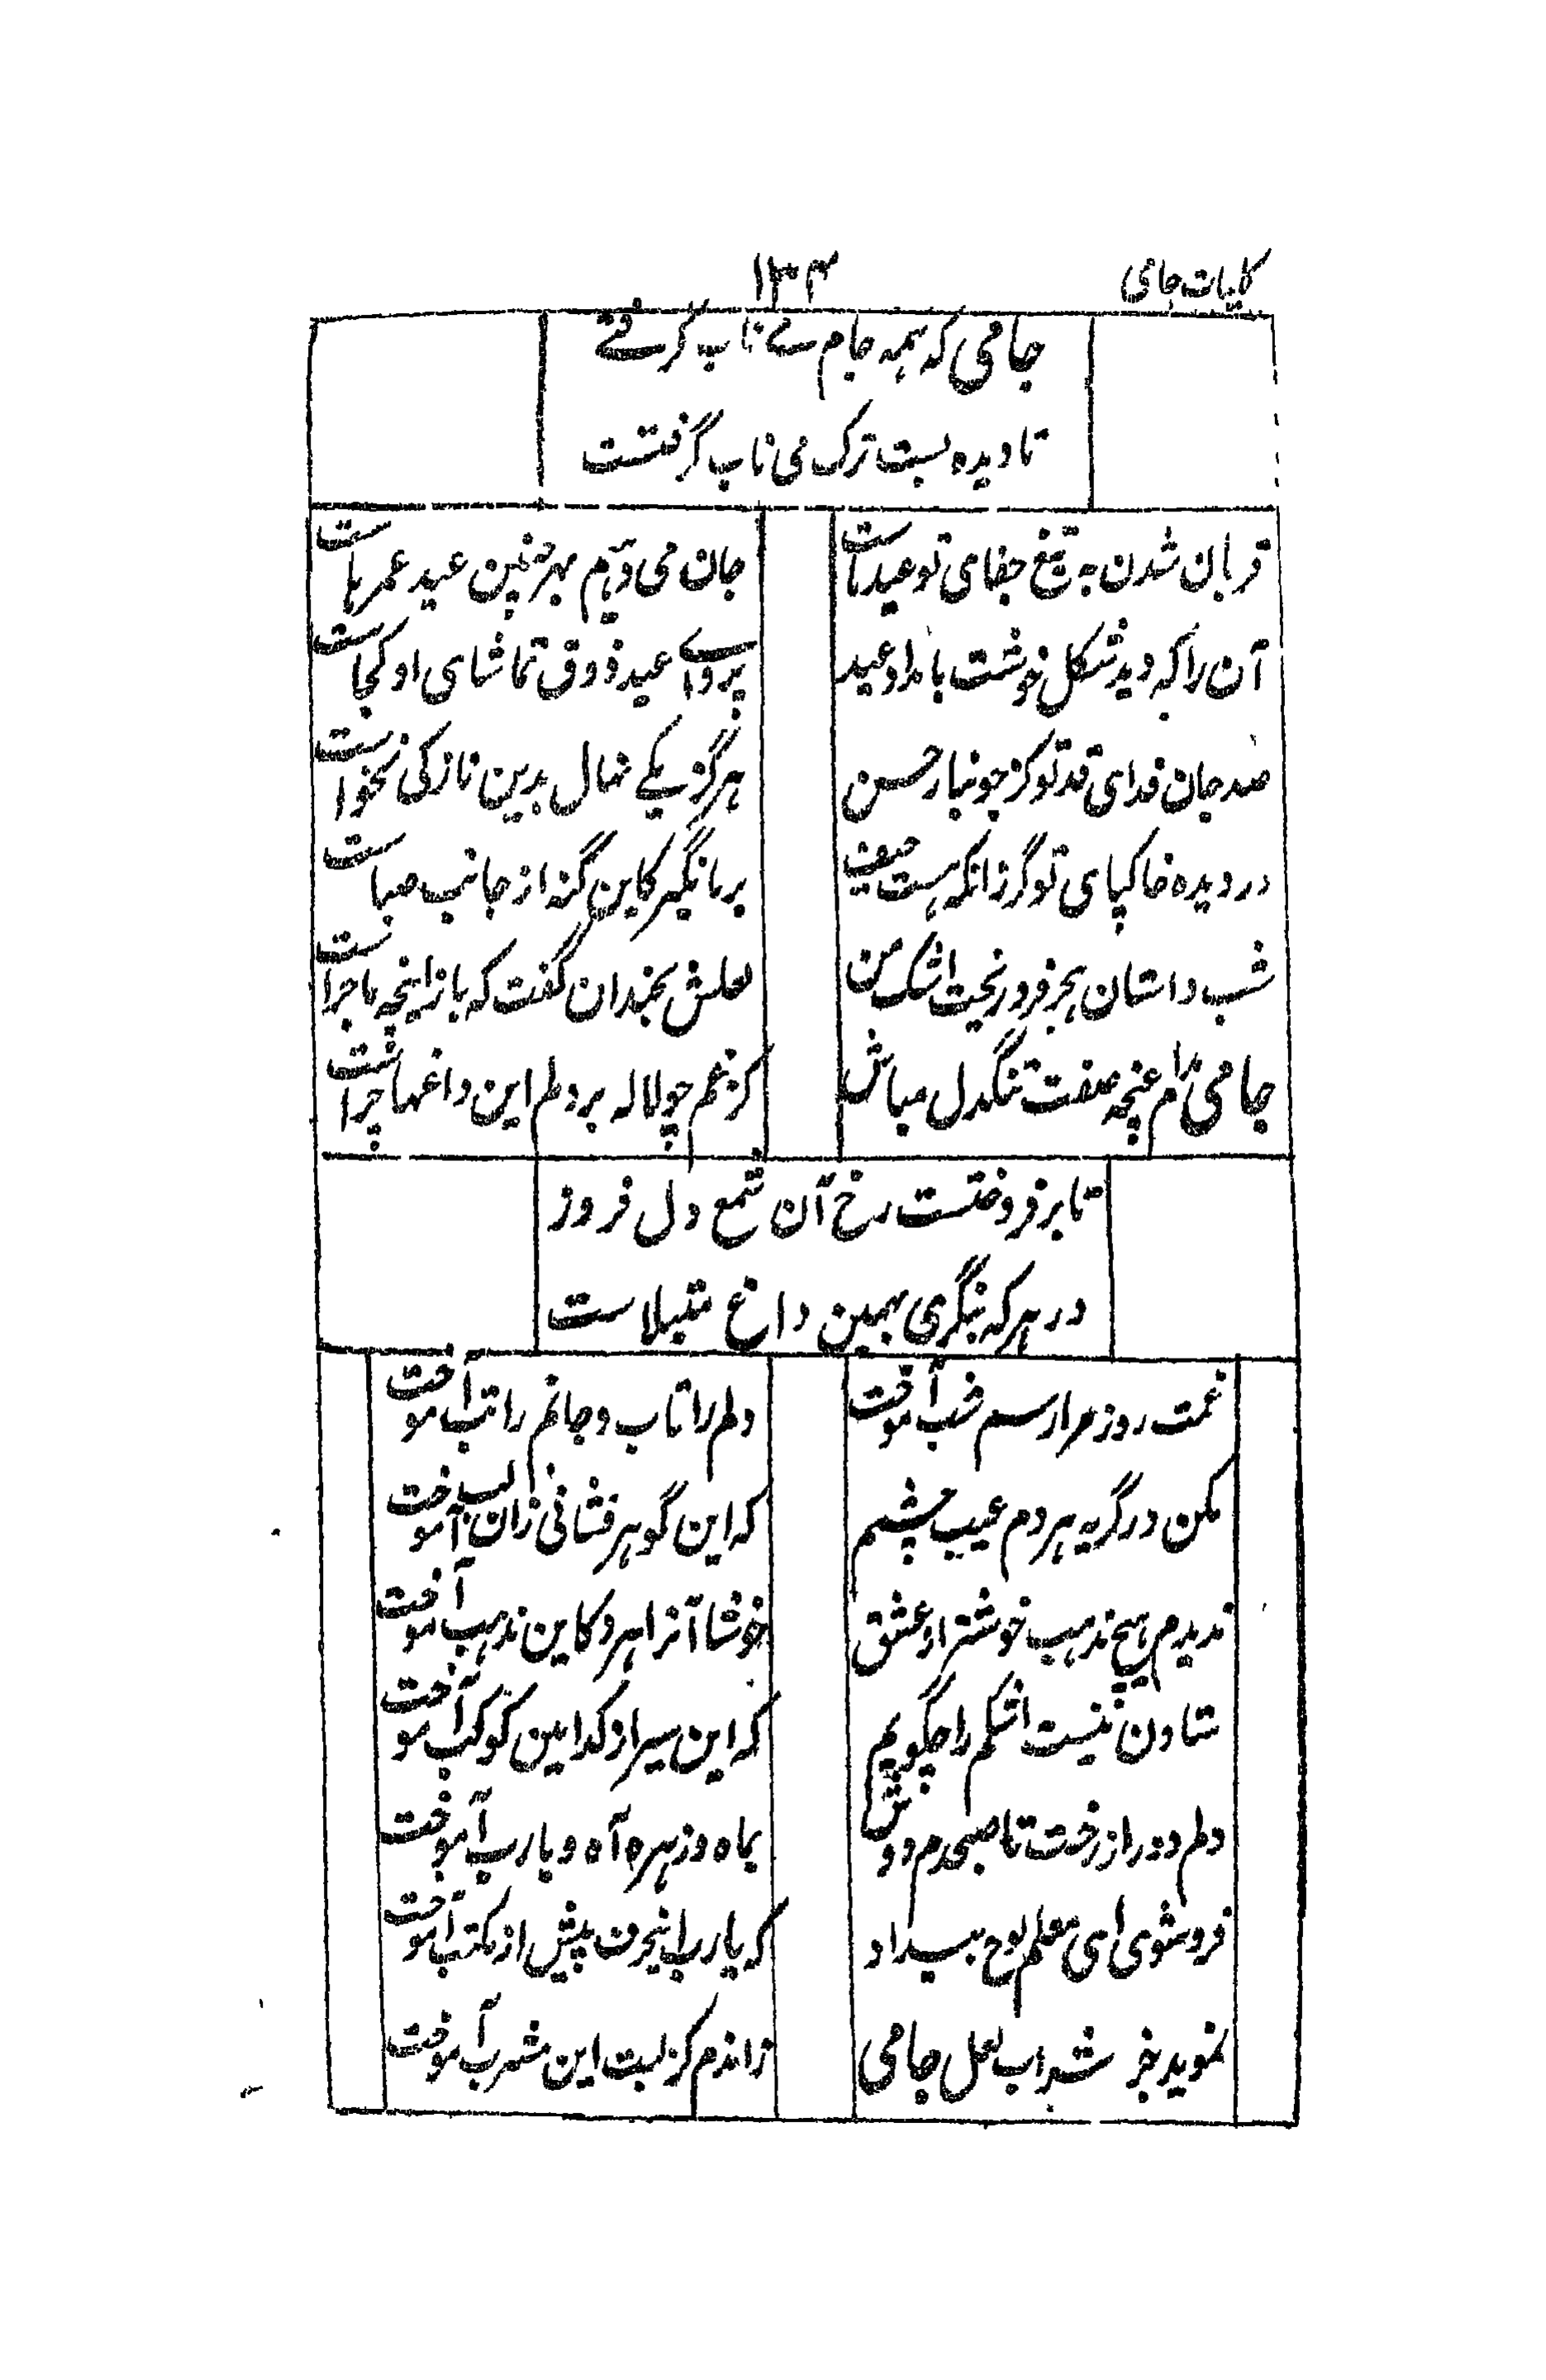 کلیات جامی
۱۳۴
جامی که همه جام مے ناب گرفتے
تا دیده بست ترک می ناب گرفتست
قربان شدن به تیغ جفای تو عید ماست
جان می دهیم بهر چنین عید عمرهاست
آن را که دید شکل خوشت بامداد عید
پرواے عید ذوق تماشای او کجاست
صد جان فدای قد تو کز جویبار حسن
هرگز یکے نهال بدین نازکی نخواست
در دیده خاکپای تو گر زانکه هست حیف
بر ما نگیر کاین گنه از جانب صباست
شب داستان هجر فرو ریخت اشک من
لعلش بخندان گفت که باز اینچه ماجراست
جامی مدام غنچه صفت تنگدل مباش
کز غم چو لاله بر دلم این داغها چراست
تا بر فروختست رخ آن شمع دل فروز
در هر که بنگری بهمین داغ مبتلاست
غمت روز مرا رسم شب آموخت
دلم را تاب و جانم را تب آموخت
مکن در گریه هر دم عیب چشمم
که این گوهر فشانی زان لب آموخت
ندیدم هیچ مذهب خوشتر از عشق
خوشا آنراهرو کاین مذهب آموخت
ستادن نیست اشکم را چگویم
که این سیر از کدامین کوکب آموخت
دلم دور از رخت تا صبحدم دوش
بماه و زهره آه و یارب آموخت
فروشوی ای معلم لوح بیداد
که یار ب اینحرف پیش از مکتب آموخت
نموید جز شراب لعل جامی
زاندم کز لبت این مشرب آموخت